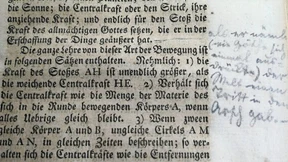 die Sonne; die Centralkraft oder den Strick, ihre
anziehende Kraft; und endlich für den Stoß die
Kraft des allmächtigen Gottes setzen, die er in der
Erschaffung der Dinge geäußert hat.
Die ganze Lehre von dieser Art der Bewegung ist
in folgenden Sätzen enthalten. Nehmlich: 1) die
Kraft des Stoßes AH ist unendlich größer, als
die weichende Centralkraft HE. 2) Verhält sich
die Centralkraft wie die Menge der Materie des
sich in die Runde bewegenden Körpers A, wenn
alles Uebrige gleich bleibt. 3) Wenn zween
gleiche Körper A und B, ungleiche Cirkels A M
und A N, in gleichen Zeiten beschreiben; so ver-
halten sich die Centralkräfte wie die Entfernungen